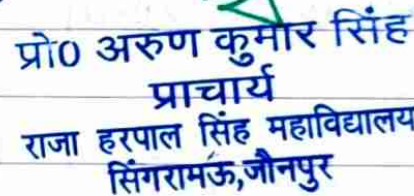 प्रो0 अरुण कुमार सिंह
प्राचार्य
राजा हरपाल सिंह महाविद्यालय
सिंगरामऊ,जौनपुर